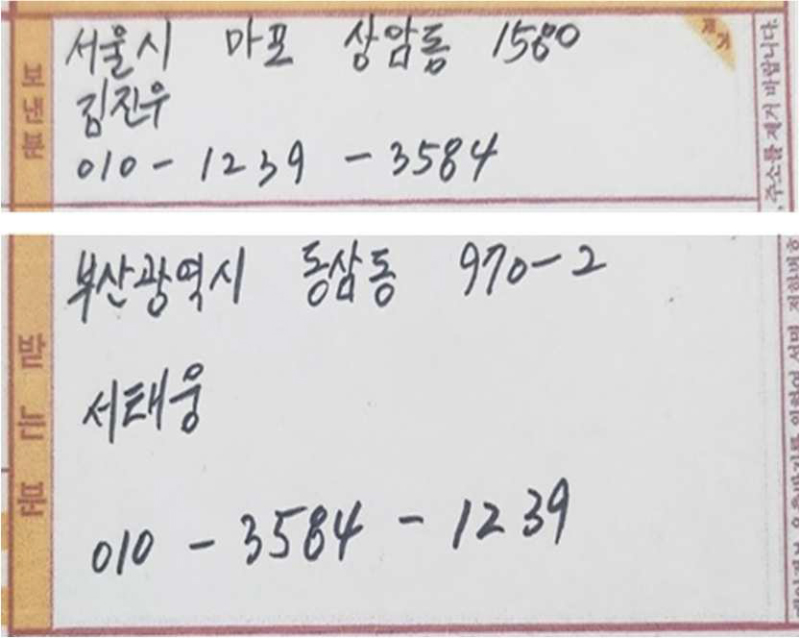 보낸분
서울시 마포 상암동 1580
김진우
010-1239-3584
제거
주소를 제거 바랍니다.
부산광역시 동삼동 970-2
서태웅
010-3584-1239